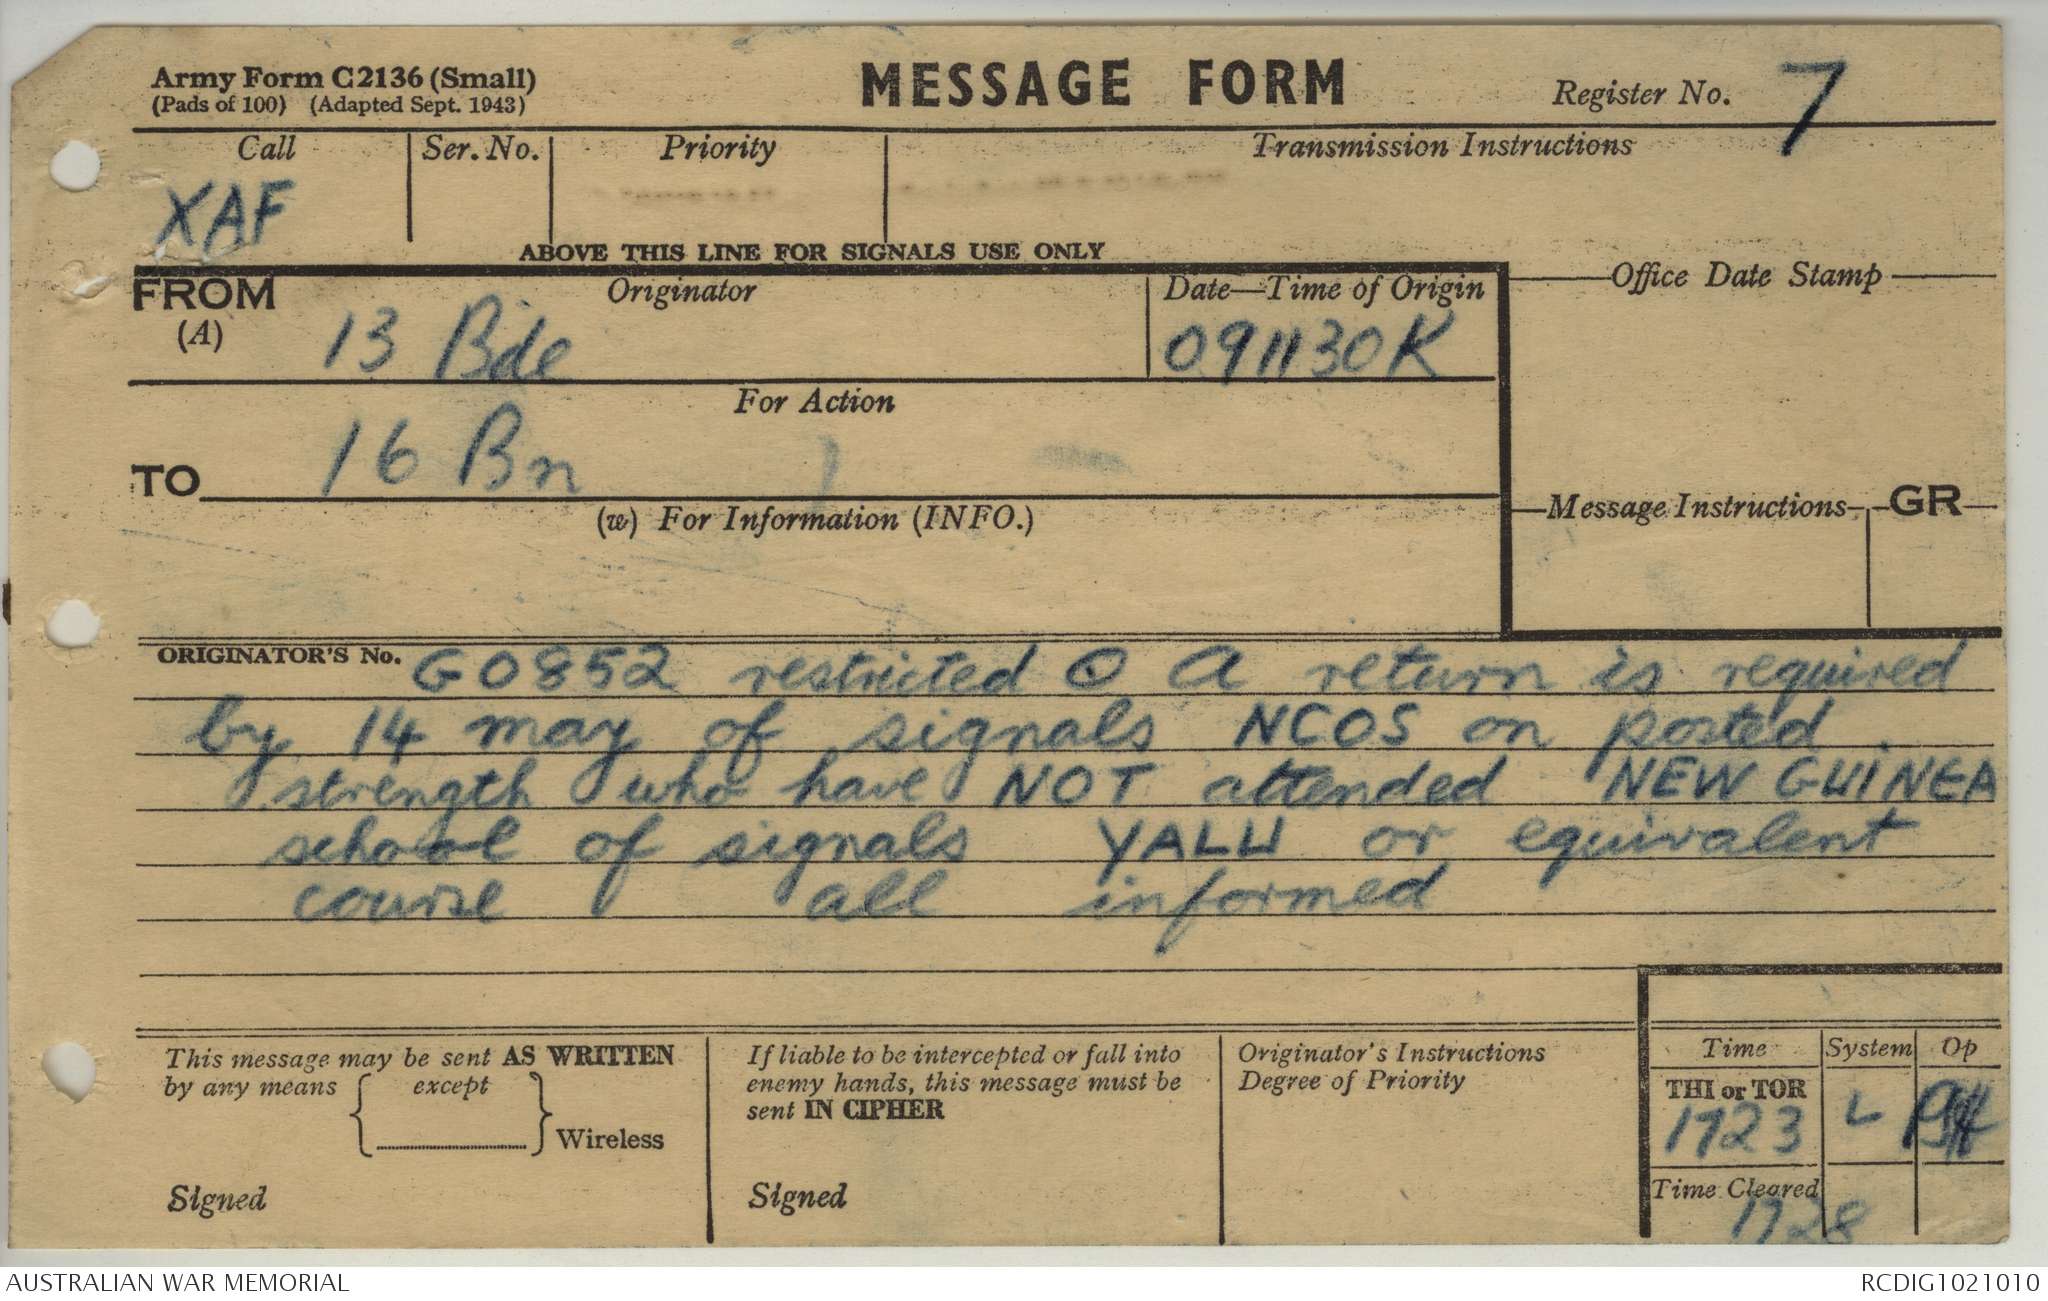 Army Form C2136 (Small)
(Pads of 100) (Adapted Sept. 1943)
MESSAGE FORM
Register No. 7
Call
Ser. No.
Priority
Transmission Instructions
XAF
ABOVE THIS LINE FOR SIGNALS USE ONLY
FROM
(A)
Originator
13 Bde
Date—Time of Origin
091130K
Office Date Stamp
For Action
TO
16 Bn
(w) For Information (INFO.)
Message Instructions
GR
ORIGINATOR'S No. GO852 restricted ⊙ A return is required
by 14 may of signals NCOS on posted
strength who have NOT attended NEW GUINEA
school of signals YALU or equivalent
course all informed
This message may be sent AS WRITTEN
by any means { except
} Wireless
Signed
If liable to be intercepted or fall into
enemy hands, this message must be
sent IN CIPHER
Signed
Originator's Instructions
Degree of Priority
Time
System
Op
THI or TOR
1723
L
Time Cleared
1728
AUSTRALIAN WAR MEMORIAL
RCDIG1021010